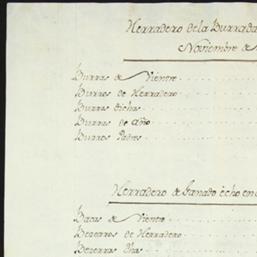 Herradero de la Burrada
Noviembre de
Burras de Vientre
Burros de Herradero
Burras dichas
Burros de año
Burros Padres
Herradero de Ganado echo en
Bacas de Vientre
Bezerros de Herradero
Bezerras Ydas